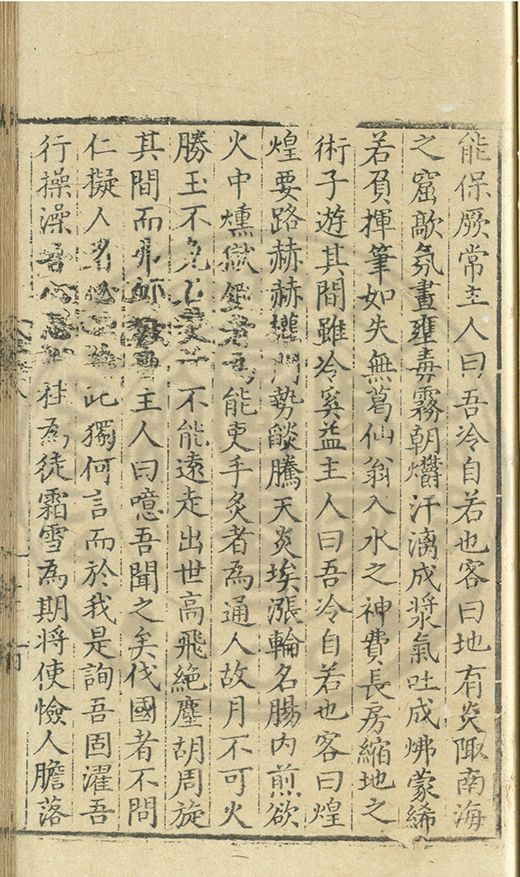 能保厥常主人曰吾冷自若也客曰地有炎陬南海
之窟歊氛晝壅毒霧朝爩汗漓成漿氣吐成炥蒙絺
若負揮筆如失無葛仙翁入水之神費長房縮地之
術子遊其間雖冷奚益主人曰吾冷自若也客曰煌
煌要路赫赫權門勢燄騰天炎埃漲輪名腸內煎欲
火中燻獄能吏手炙者為通人故月不可火
勝玉不不能遠走出世高飛絶塵胡周旋
其間而主人曰噫吾聞之矣伐國者不問
仁擬人此獨何言而於我是詢吾固濯吾
行操澡吾為徒霜雪為期將使憸人膽落